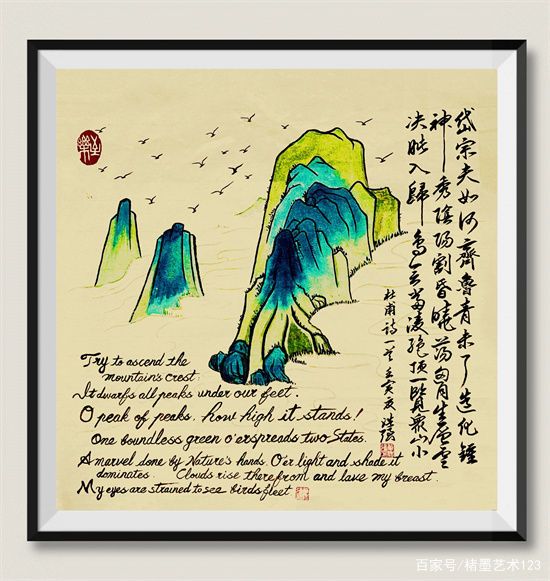 岱宗夫如何齊魯青未了造化鍾
神秀陰陽割昏曉蕩胸生層雲
决眦入歸鳥會當凌絕頂一覽衆山小
杜甫詩一首壬寅夏
Try to ascend the
mountain's crest:
It dwarfs all peaks under our feet.
O peak of peaks, how high it stands!
One boundless green o'erspreads two States.
A marvel done by Nature's hands. O'er light and shade it
dominates. Clouds rise therefrom and lave my breast.
My eyes are strained to see birds fleet
百家号/楮墨艺术123